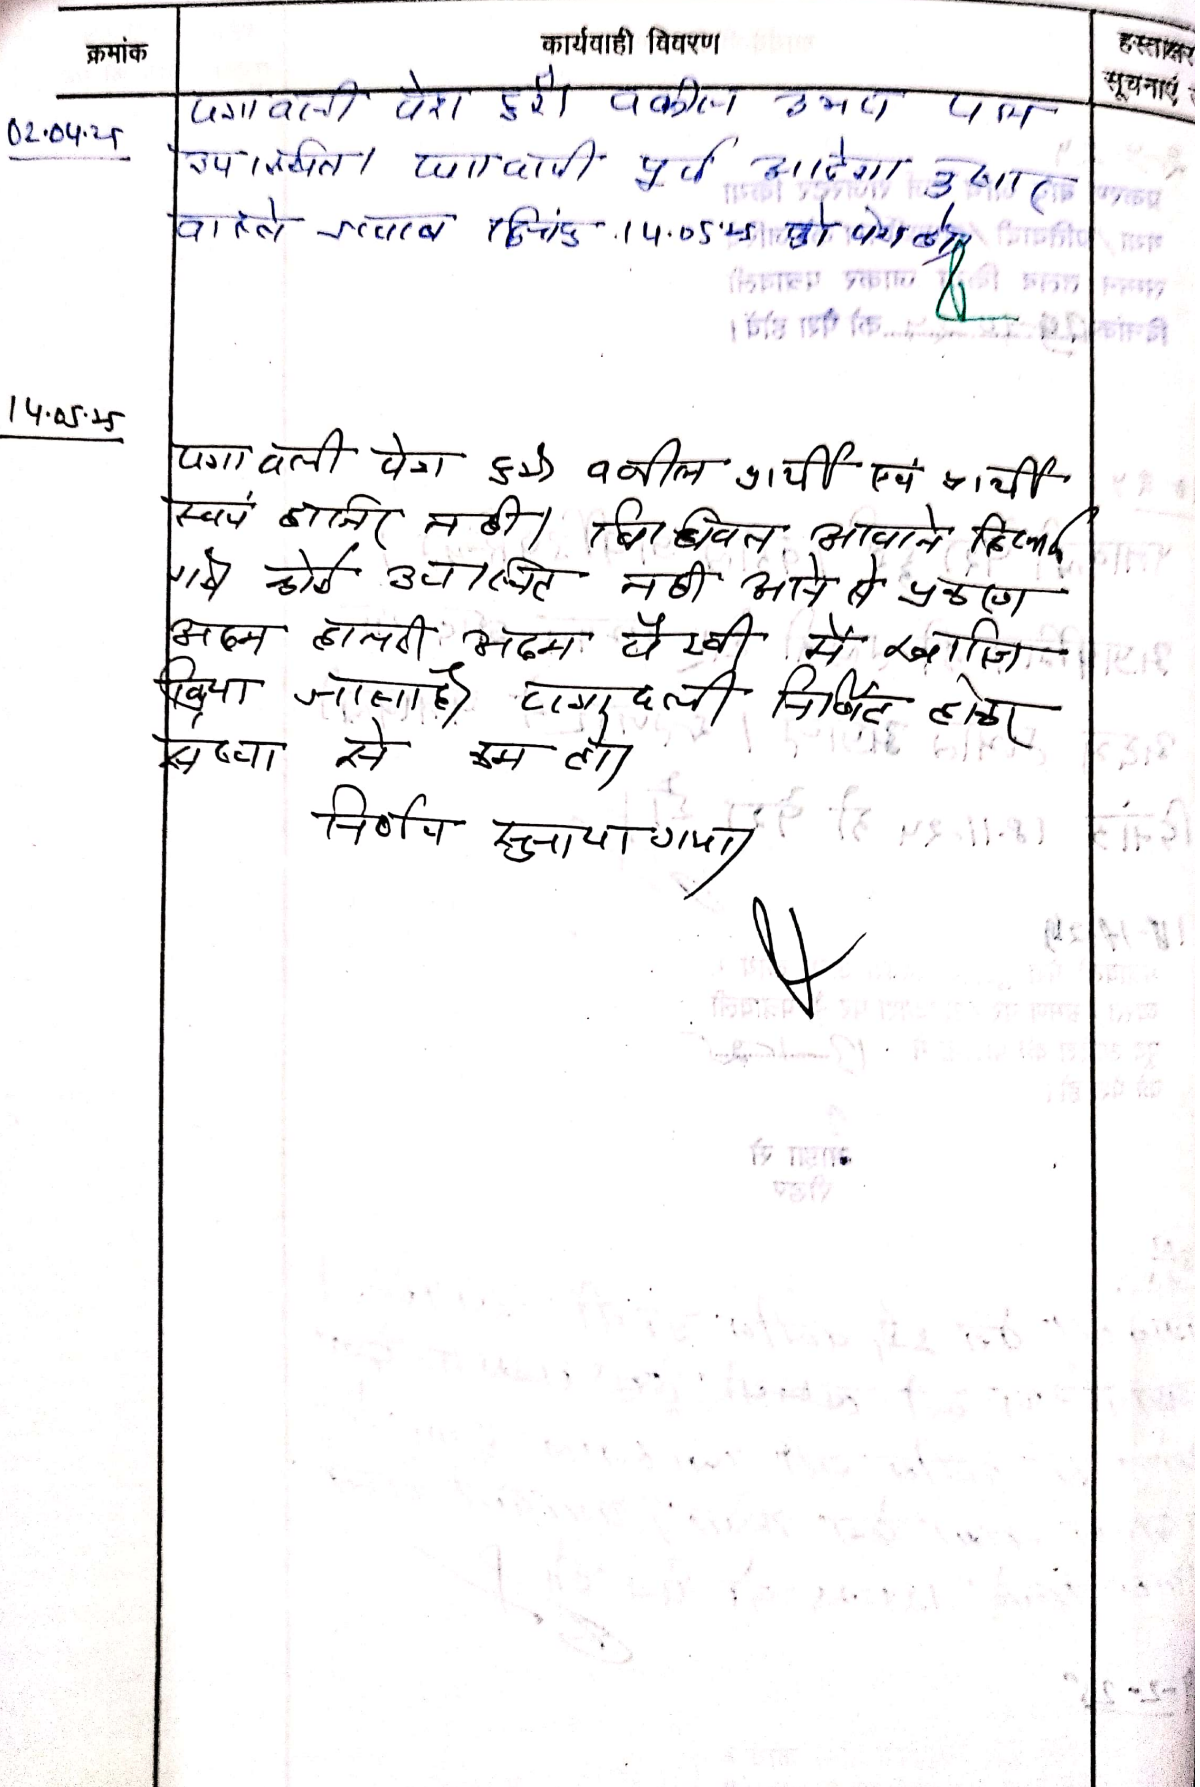 क्रमांक
कार्यवाही विवरण
हस्ताक्षर
सूचनाएं
02.04.25
पत्रावली पेश हुई। वकील उभय पक्ष
उपस्थित। पत्रावली पूर्व आदेश अनुसार
वास्ते जवाब दिनांक 14.05.25 को पेश हो।
14.05.25
पत्रावली पेश हुई। वकील प्रार्थी एवं प्रार्थी
स्वयं हाजिर नही। विधिवत आवाजे दिलाई
गई कोई उपस्थित नही आने से प्रकरण
अदम हाजरी अदम पैरवी में खारिज
किया जाता है। पत्रावली निर्णित होकर
संख्या से कम हो।
निर्णय सुनाया गया।